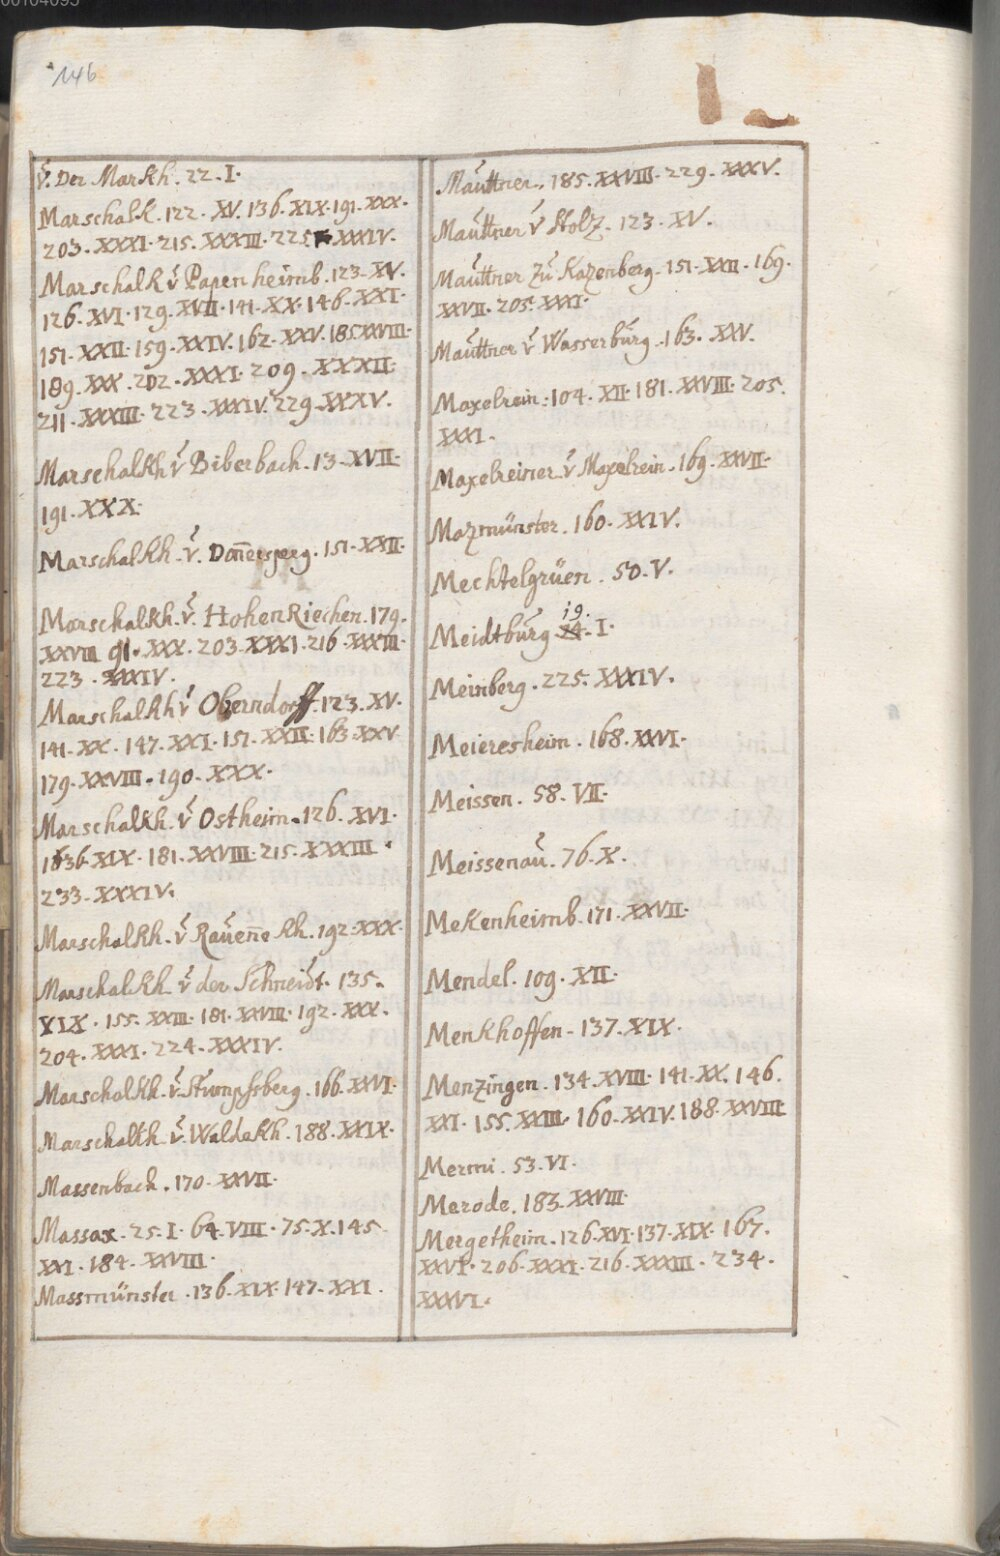 146
v̆. Der Markh. 22. I.
Marschalk. 122. XV. 136. XIX. 191. XXX.
203. XXXI. 215. XXXIII. 225. XXXIV.
Marschalk v̆ Papenheimb. 123. XV.
126. XVI. 129. XVII. 141. XX. 146. XXI.
151. XXII. 159. XXIV. 162. XXV. 185. XXVIII.
189. XXX. 202. XXXI. 209. XXXII.
211. XXXIII. 223. XXXIV. 229. XXXV.
Marschalkh v̆ Biberbach. 13. XVII.
191. XXX.
Marschalkh. v̆. Don̄ersperg. 151. XXII.
Marschalkh. v̆. HohenRiechen. 179.
XXVIII. 91. XXX. 203. XXXI. 216. XXXIII.
223. XXXIV.
Marschalkh v̆ Oberndorff. 123. XV.
141. XX. 147. XXI. 151. XXII. 163. XXV
179. XXVIII. 190. XXX.
Marschalkh. v̆ Ostheim. 126. XVI.
136. XIX. 181. XXVIII. 215. XXXIII.
233. XXXIV.
Marschalkh. v̆ Raŭen̄ekh. 192. XXX.
Marschalkh v̆ der Schneidt. 135.
XIX. 155. XXIII. 181. XXVIII. 192. XXX.
204. XXXI. 224. XXXIV.
Marschalkh. v̆ Stumpfsberg. 166. XXVI.
Marschalkh v̆. Waldekh. 188. XXIX.
Massenbach. 170. XXVII.
Massax. 25. I. 64. VIII. 75. X. 145.
XXI. 184. XXVIII.
Massmünster. 136. XIX. 147. XXI.
Maŭttner. 185. XXVIII. 229. XXXV.
Maŭttner v̆ Holz. 123. XV.
Maŭttner Zŭ Kazenberg. 151. XXII. 169.
XXVII. 205. XXXI.
Maŭttner v̆ Wasserbŭrg. 163. XXV.
Maxelrein. 104. XII. 181. XXVIII. 205.
XXXI.
Maxelreiner. v̆ Maxelrein. 169. XXVII.
Mazmünster. 160. XXIV.
Mechtelgrüen. 50. V.
19.
Meidtbŭrg. I.
Meinberg. 225. XXXIV.
Meieresheim. 168. XXVI.
Meissen. 58. VII.
Meissenaŭ. 76. X.
Mekenheimb. 171. XXVII.
Mendel. 109. XII.
Menkhoffen. 137. XIX.
Menzingen. 134. XVIII. 141. XX. 146.
XXI. 155. XXIII. 160. XXIV. 188. XXVIII
Mermi. 53. VI.
Merode. 183. XXVIII.
Mergetheim. 126. XVI. 137. XIX. 167.
XXVI. 206. XXXI. 216. XXXIII. 234.
XXXVI.